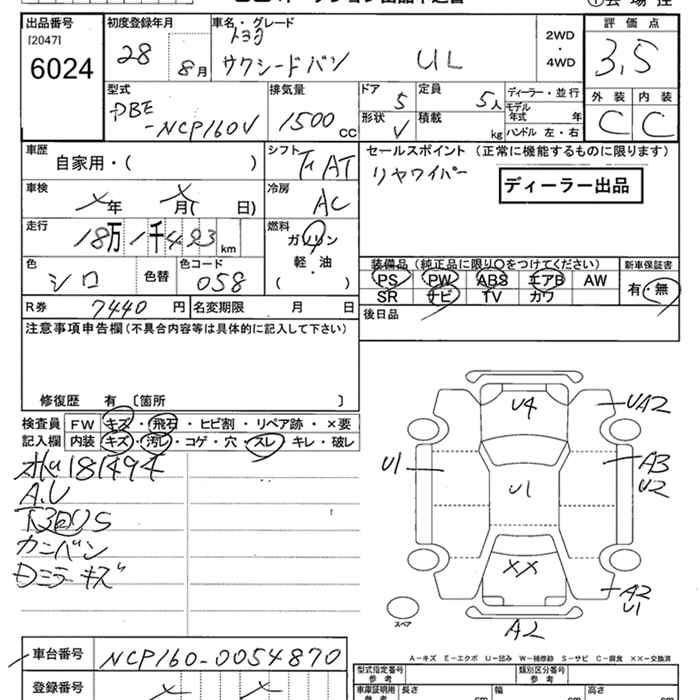 出品番号 初度登録年月 車名・グレード 評価点
[2047] トヨタ
6024 28 8月 サクシードバン UL 2WD・4WD 3.5
外装 内装
C C
型式 排気量 ドア 定員 ディーラー・並行
DBE 1500cc 5 5人 モデル年式 年
-NCP160V 形状 V 積載 kg ハンドル 左・右
車歴 シフト セールスポイント (正常に機能するものに限ります)
自家用・( ) AT リヤワイパー
ディーラー出品
車検 冷房
メ年 メ月( 日) AC
走行 燃料
18万1千493km ガソリン
軽・油
( )
色 色コード
シロ 色替 058
装備品 (純正品に限り○をつけてください) 新車保証書
PS PW ABS エアB AW 有・無
SR ナビ TV カワ
R券 7440円 名変期限 月 日 後日品
注意事項申告欄 (不具合内容等は具体的に記入して下さい)
修復歴 有 〔箇所 〕
検査員 FW キズ・飛石・ヒビ割・リペア跡・×要
記入欄 内装 キズ・汚レ・コゲ・穴・スレ・キレ・破レ
181494
A.U
カンバン
ミラーキズ
U4
UA2
U1
A3
U2
U1
XX
A2
U1
A2
スペア
A-キズ E-エクボ U-凹み W-補修跡 S-サビ C-腐食 ××-交換済
車台番号 NCP160-0054870
型式指定番号 参考 類別区分番号 参考
登録番号 メ メ
車庫証明用 参考 長さ cm 幅 cm 高さ cm